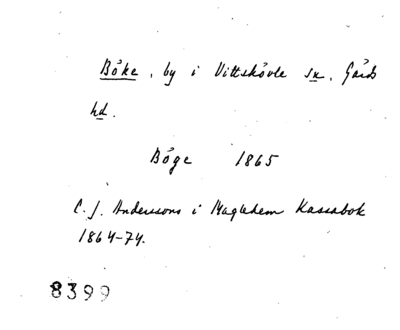 Böke, by i Vittskövle sn, Gärds
hd.
Böge 1865
C. J. Anderssons i Maglehem Kassabok
1864-74.
8399